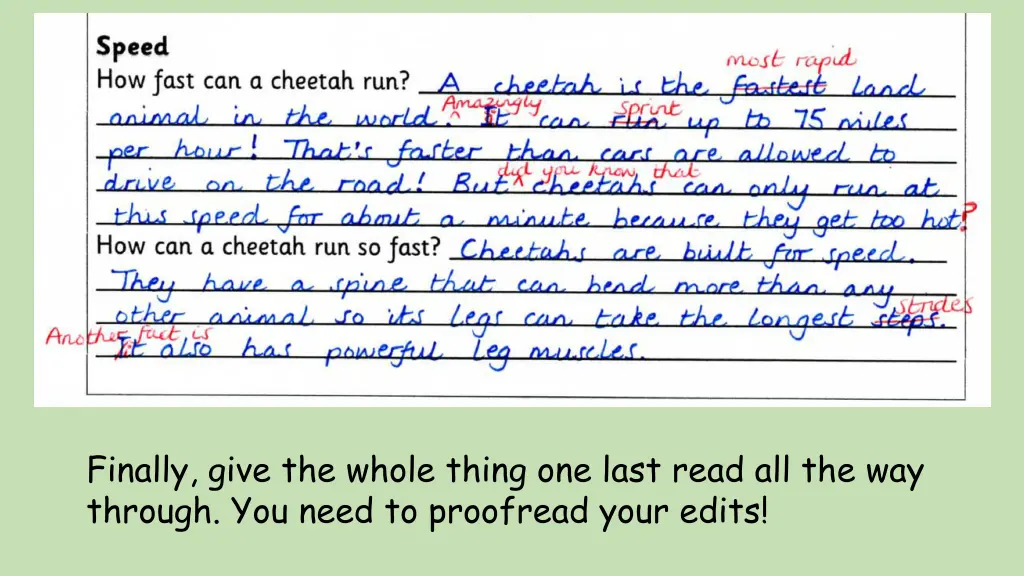 Speed
most rapid
How fast can a cheetah run? A cheetah is the fastest land
Amazingly sprint
animal in the world. ^ It can run up to 75 miles
per hour! That's faster than cars are allowed to
did you know that
drive on the road! But ^ cheetahs can only run at
this speed for about a minute because they get too hot?
How can a cheetah run so fast? Cheetahs are built for speed.
They have a spine that can bend more than any
strides
other animal so its legs can take the longest steps.
Another fact is
It also has powerful leg muscles.
Finally, give the whole thing one last read all the way
through. You need to proofread your edits!